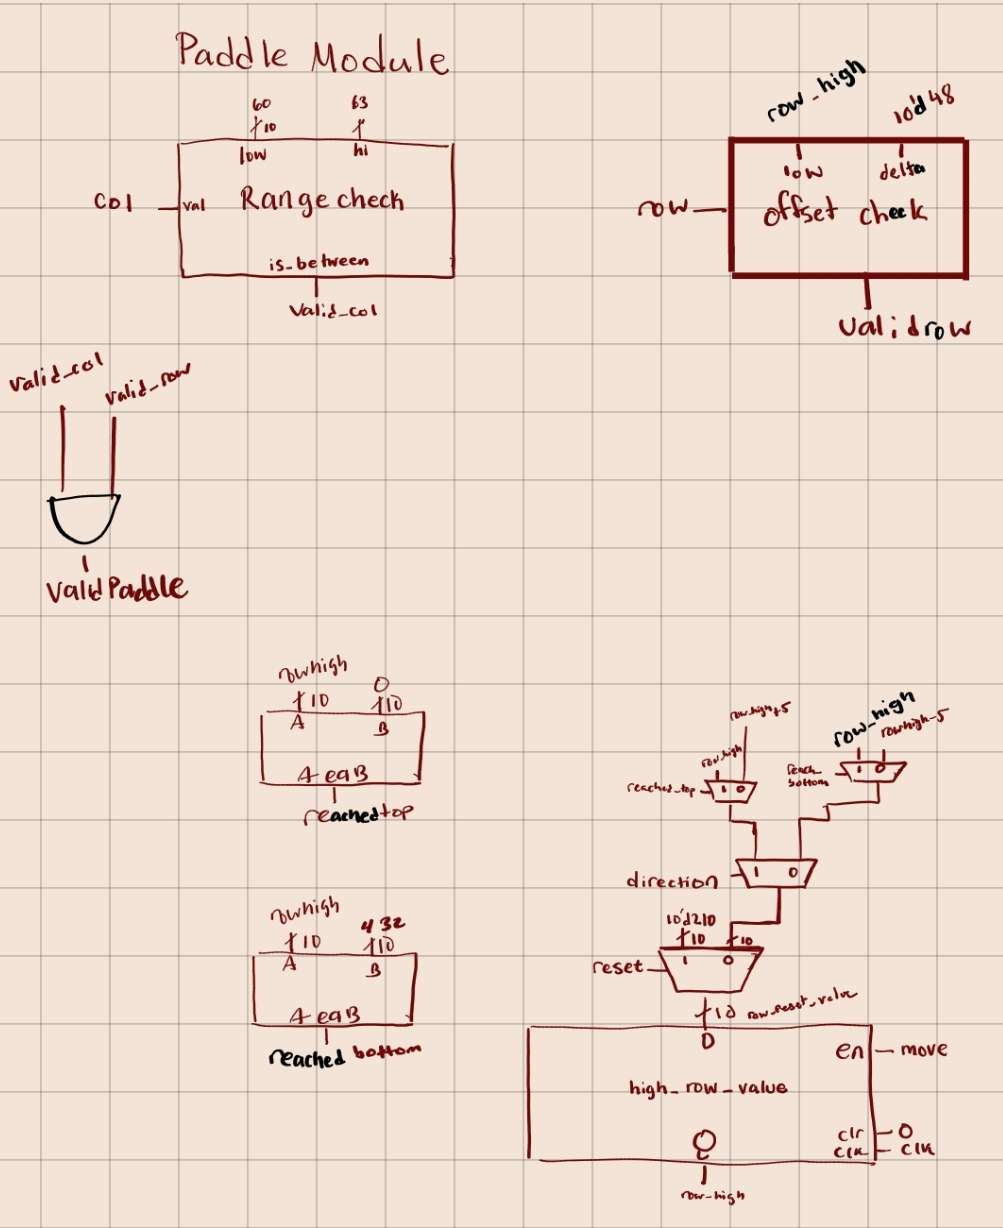 Paddle Module
60 63
10
low hi
Col val Range check
is_between
Valid_col
row_high 10'd48
low delta
row offset check
valid row
valid_col valid_row
valid Paddle
rowhigh 0
10 10
A B
A eqB
reached top
rowhigh 432
10 10
A B
A eqB
reached bottom
row_high
row_high rowhigh-5
reached_top 1 0
reach bottom 1 0
direction 1 0
10'd210
10 10
reset 1 0
10 row_reset_value
D
en move
high_row_value
clr 0
clk clk
Q
row-high